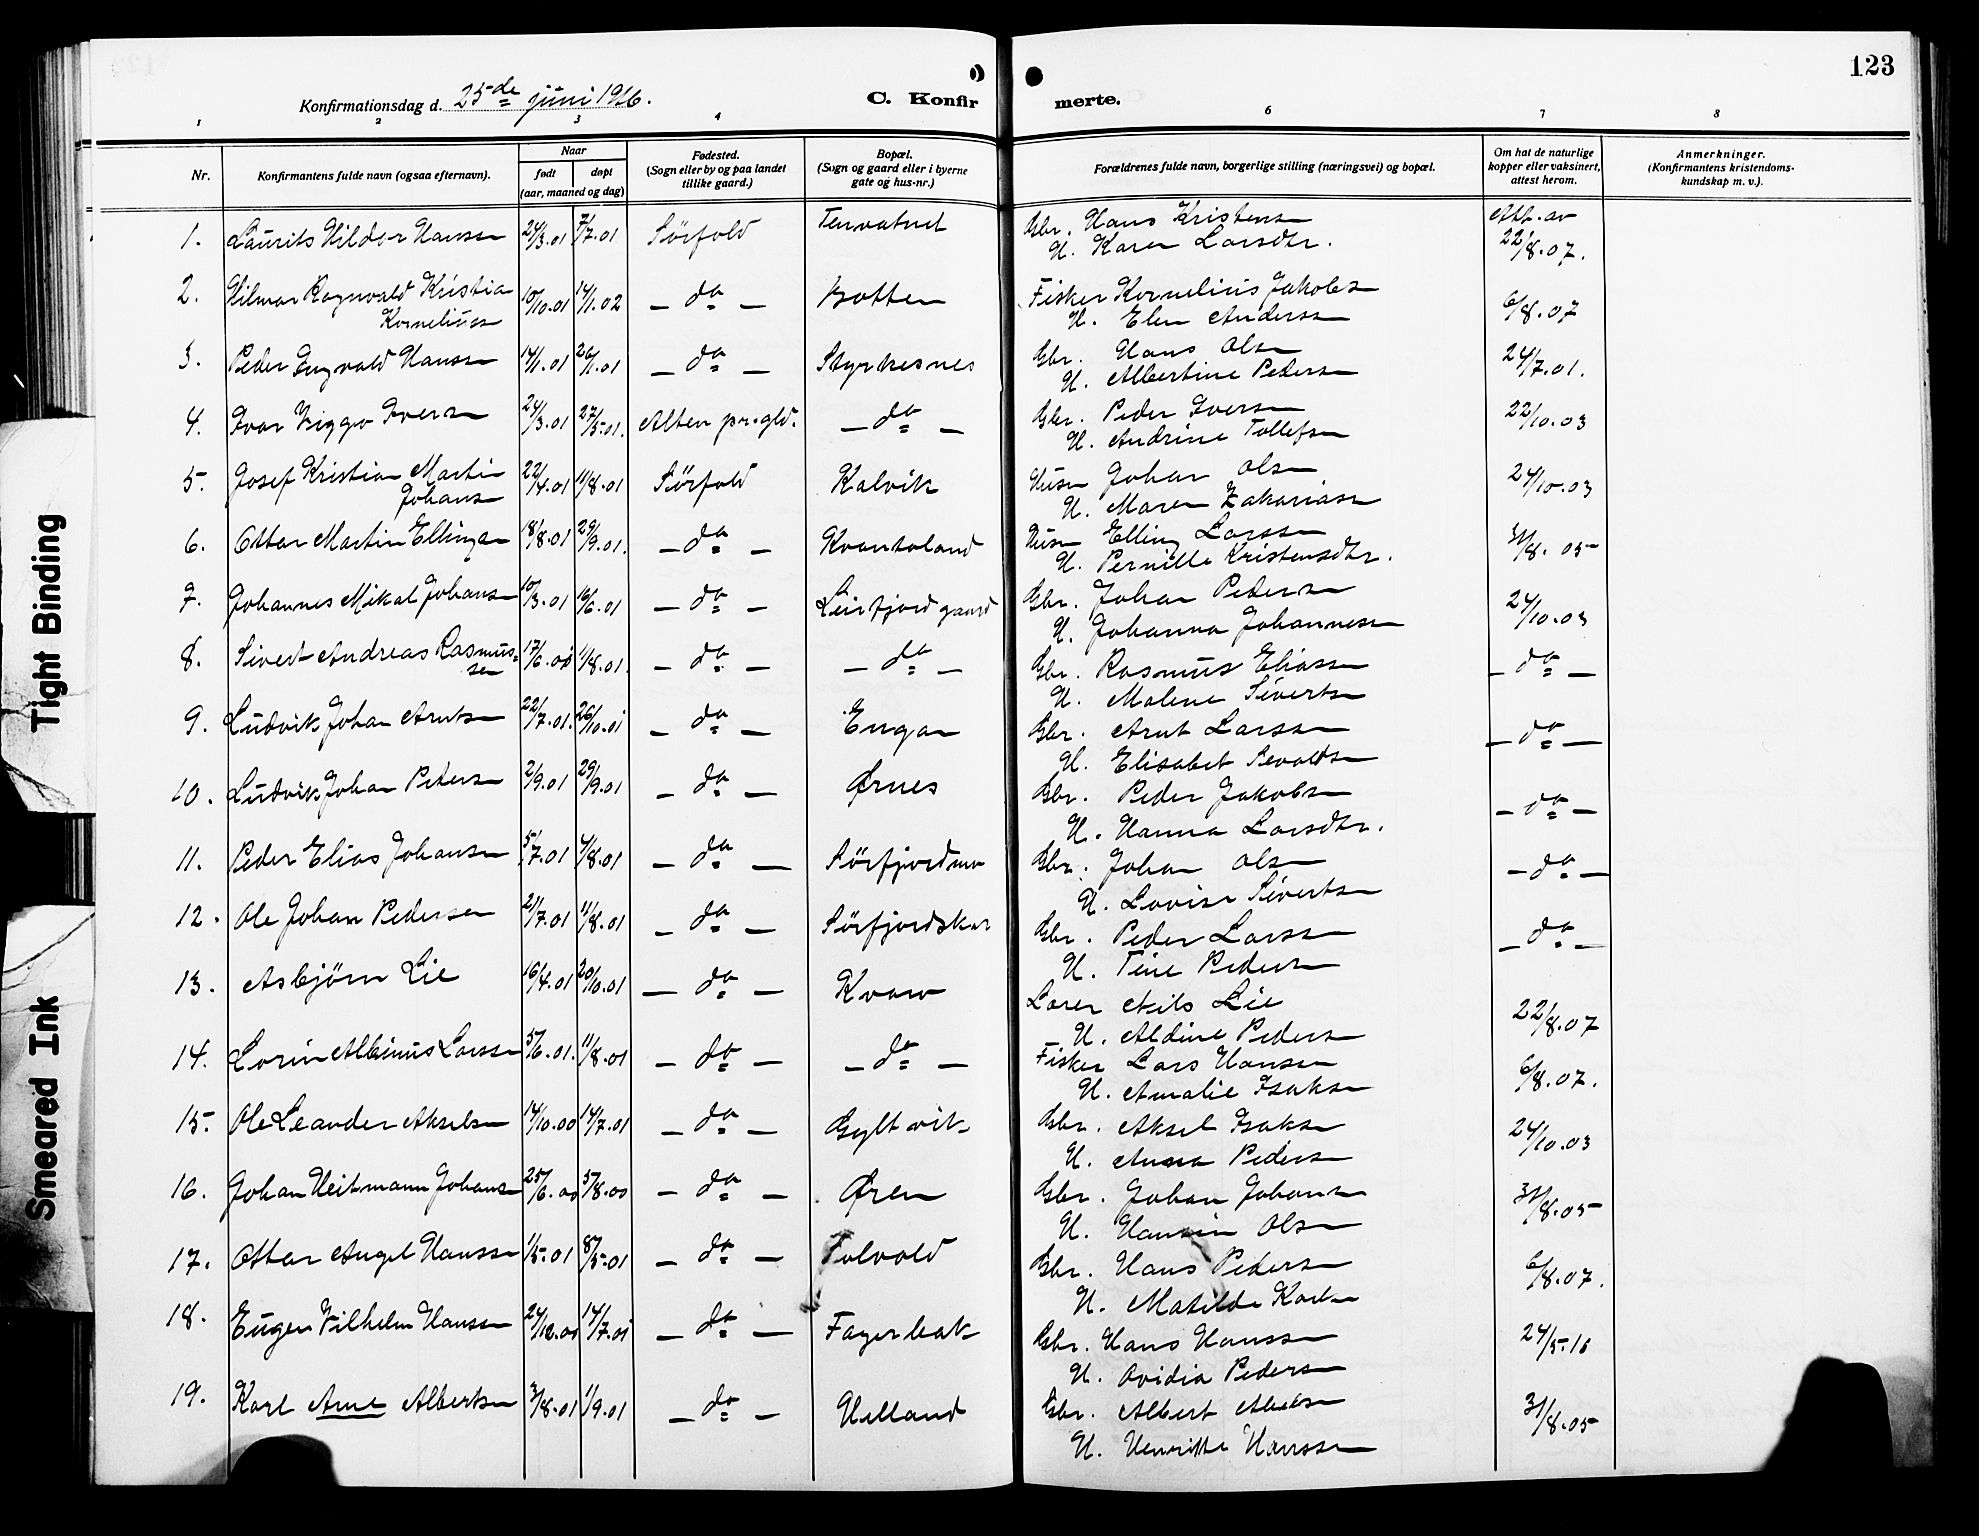 123
Konfirmationsdag d. 25de juni 1916.
C. Konfir merte.
1 2 3 4 6 7 8
Nr.
Konfirmantens fulde navn (ogsaa efternavn).
Naar
født døpt
(aar, maaned og dag)
Fødested.
(Sogn eller by og paa landet
tillike gaard.)
Bopæl.
(Sogn og gaard eller i byerne
gate og hus-nr.)
Forældrenes fulde navn, borgerlige stilling (næringsvei) og bopæl.
Om hat de naturlige
kopper eller vaksinert,
attest herom.
Anmerkninger.
(Konfirmantens kristendoms-
kundskap m. v.).
1. Laurits Hildor Hanssen 24/3.01 7/7.01 Sörfold Tennvatnet Gbr. Hans Kristens Att. av
H. Karen Larsdtr. 22/8.07.
2. Hilmar Ragnvald Kristian 10/10.01 14/1.02 - do - Botten Fisker Kornelius Jakobsen
Korneliuss H. Elen Anderssen 6/8.07
3. Peder Ingvald Hanssen 14/1.01 26/1.01 - do - Styrkesnes Gbr. Hans Olsen 24/7.01.
H. Albertine Pedersen
4. Ivar Viggo Iversen 24/3.01 27/5.01. Alten pr.gld. - do - Gbr. Peder Iversen 22/10.03
H. Andrine Tollefsen
5. Josef Kristian Martin 22/4.01 11/8.01 Sörfold Kalvik Husm Johan Olsen 24/10.03
Johansen H. Maren Zakariassen
6. Ottar Martin Ellingsen 18/8.01 29/9.01. - do - Kvantoland Husm Elling Larssen 31/8.05
H. Pernille Kristensdtr.
7. Johannes Mikal Johansen 10/3.01 16/6.01 - do - Leirfjordgaard Gbr. Johan Pedersen 24/10.03
H. Johanna Johannessen
8. Sivert Andreas Rasmus- 17/6.00 11/8.01. - do - - do - Gbr. Rasmus Eliassen - do -
sen H. Malene Sivertsen
9. Ludvik Johan Arntsen 22/7.01. 26/10.01 - do - Engan Gbr. Arnt Larssen - do -
H. Elisabet Sevaldsen
10. Ludvik Johan Pedersen 2/9.01 29/9.01 - do - Ørnes Gbr. Peder Jakobsen - do -
H. Hanna Larsdtr.
11. Peder Elias Johansen 5/7.01 4/8.01 - do - Sörfjordmo Gbr. Johan Olsen - do -
H. Lovise Sivertsen
12. Ole Johan Pedersen 21/7.01 11/8.01 - do - Sörfjordskar Gbr. Peder Larssen - do -
H. Tine Pedersen
13. Asbjörn Lie 16/4.01 20/10.01 - do - Kvarv Lærer Nils Lie 22/8.07
H. Aldine Pedersen
14. Lorin Albinus Larssen 5/6.01. 11/8.01 - do - - do - Fisker Lars Hansen 6/8.07.
H. Amalie Isaksen
15. Ole Leander Akselsen 14/10.00 14/7.01 - do - Gyltvik Gbr. Aksel Isaksen 24/10.03
H. Anna Pedersen
16. Johan Heitmann Johansen 25/6.00 5/8.00 - do - Øren Gbr. Johan Johansen 31/8.05
H. Hansin Olsen
17. Ottar Angel Hanssen 1/5.01 8/5.01 - do - Tolvold Gbr. Hans Pedersen 6/8.07.
H. Matilde Karlsen
18. Eugen Vilhelm Hanssen 24/12.00 14/7.01 - do - Fagerbak Gbr. Hans Hanssen 24/5.16
H. Ovidia Pedersen
19. Karl Arne Albertsen 3/8.01 1/9.01 - do - Helland Gbr. Albert 31/8.05
H. Henritte Hanssen
Tight Binding
Smeared Ink